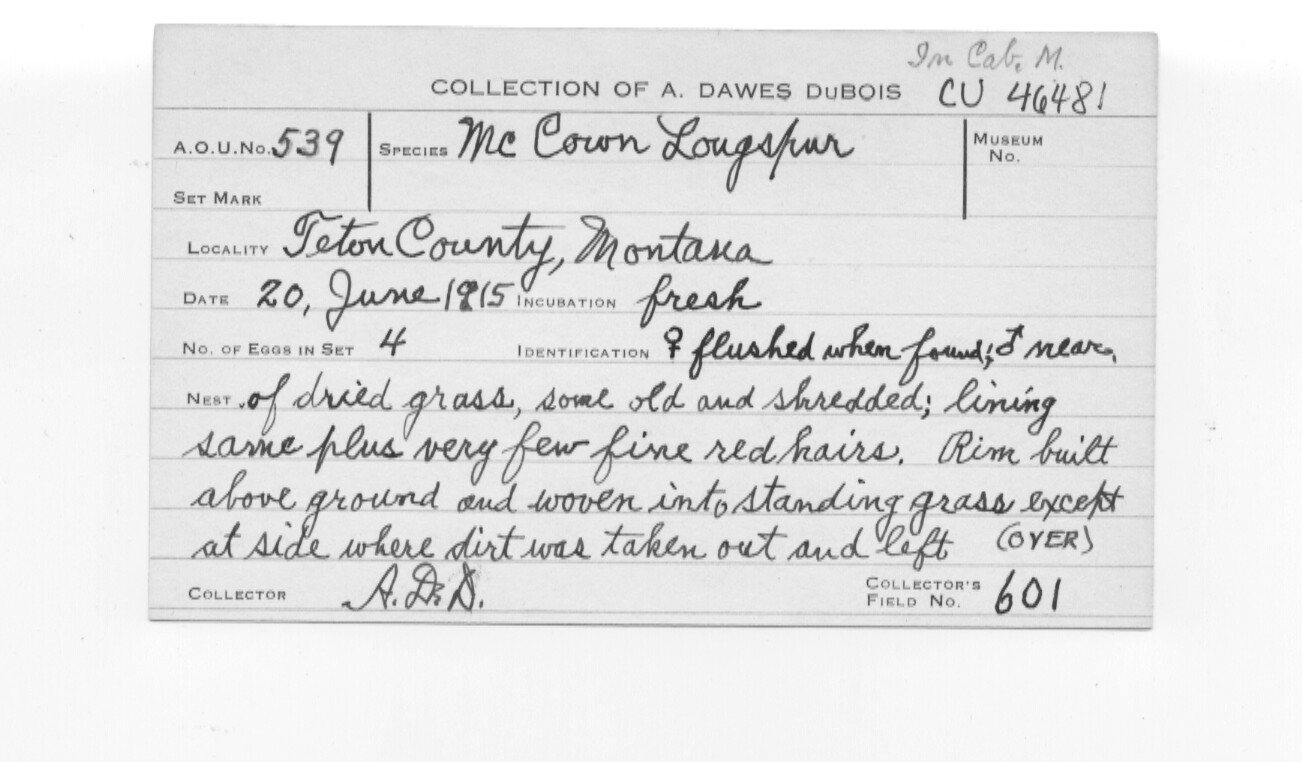 In Cab. M.
COLLECTION OF A. DAWES DUBOIS CU 46481
A.O.U.No. 539 SPECIES Mc Cown Longspur MUSEUM No.
SET MARK
LOCALITY Teton County, Montana
DATE 20, June 1915 INCUBATION fresh
NO. OF EGGS IN SET 4 IDENTIFICATION ♀ flushed when found; ♂ near.
NEST of dried grass, some old and shredded; lining
same plus very few fine red hairs. Rim built
above ground and woven into standing grass except
at side where dirt was taken out and left (OVER)
COLLECTOR A. D. D. COLLECTOR'S FIELD NO. 601